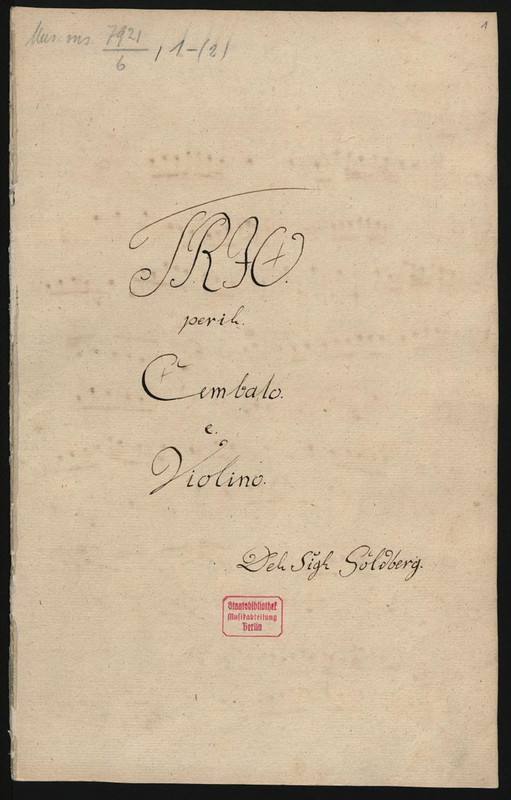 Mus. ms. 7921/6, 1-(2)
1
TRIO.
per il.
Cembalo.
e.
Violino.
Del Sigl Goldberg.
Staatsbibliothek
Musikabteilung
Berlin